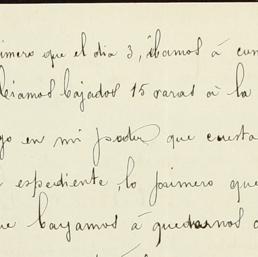 imero que el dia 3, ibamos á cum
biamos bajados 15 varas á la
go en mi poder que cuesta
espediente, lo primero que
ue bayamos á quedarnos